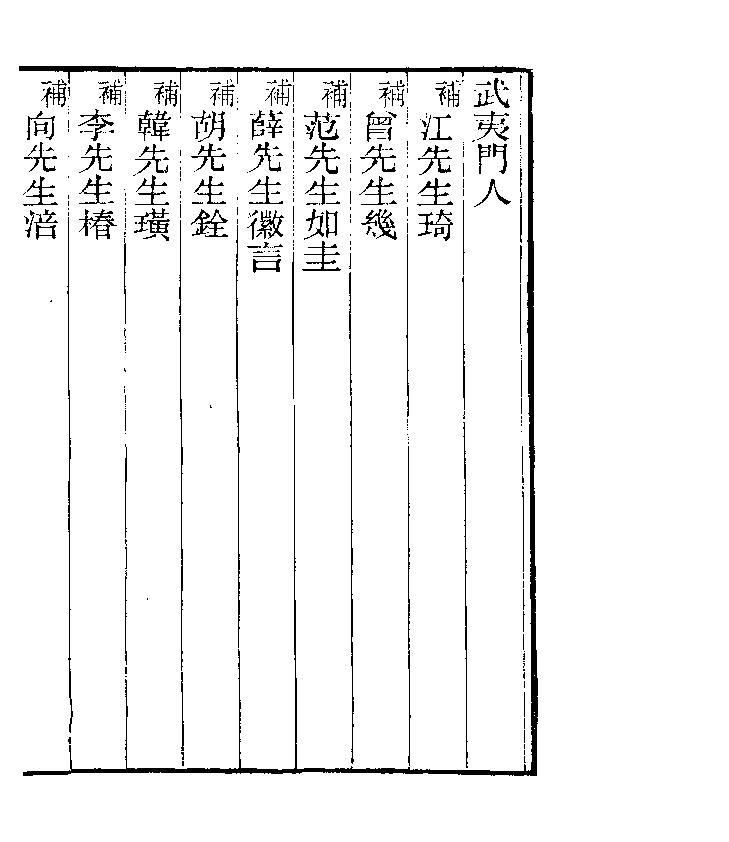 武夷門人
補江先生琦
補曾先生幾
補范先生如圭
補薛先生徽言
補胡先生銓
補韓先生璜
補李先生椿
補向先生涪